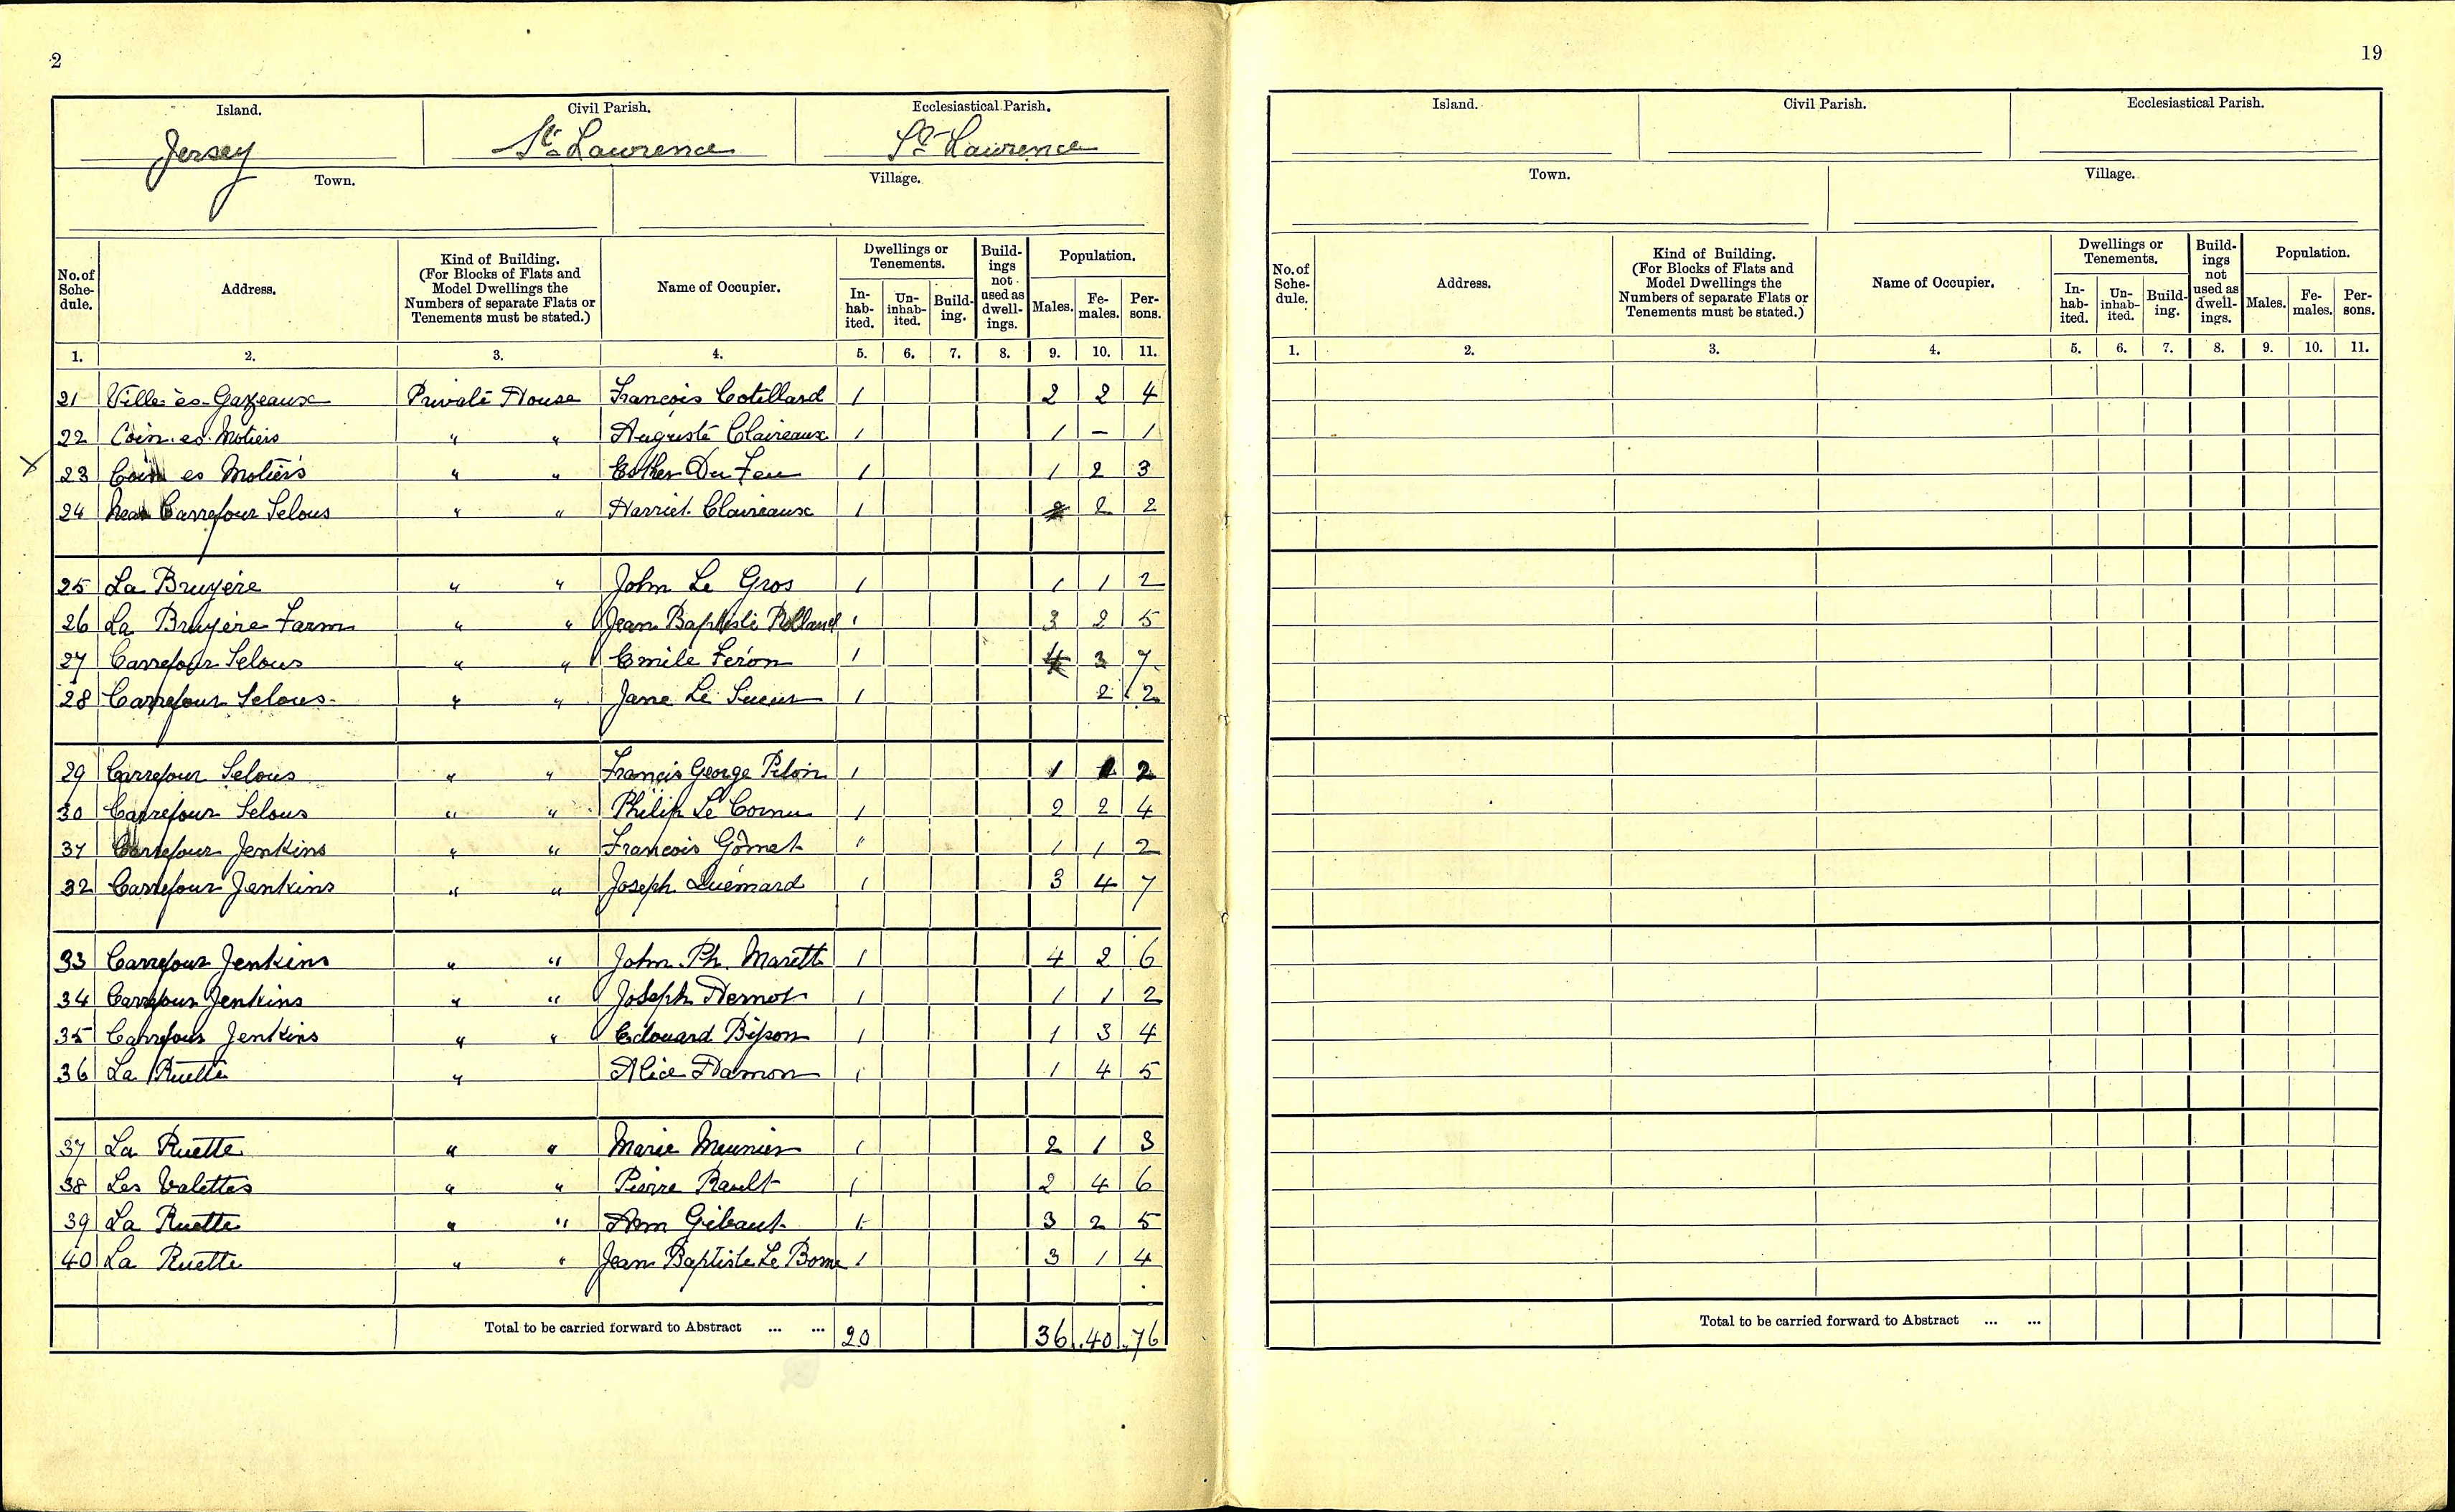 2
Island. Civil Parish. Ecclesiastical Parish.
Jersey St. Lawrence St. Lawrence
Town. Village.
No. of Sche- dule. Address. Kind of Building. (For Blocks of Flats and Model Dwellings the Numbers of separate Flats or Tenements must be stated.) Name of Occupier. Dwellings or Tenements. In- hab- ited. Un- inhab- ited. Build- ing. Build- ings not used as dwell- ings. Population. Males. Fe- males. Per- sons.
1. 2. 3. 4. 5. 6. 7. 8. 9. 10. 11.
21 Ville ès Gazeaux Private House Francois Cotillard 1 2 2 4
22 Coin es Motiers " " Auguste Claireaux 1 1 – 1
X 23 Coin es Motiers " " Esther Du Feu 1 1 2 3
24 Near Carrefour Selous " " Harriet Claireaux 1 2 2
25 La Bruyère " " John Le Gros 1 1 1 2
26 La Bruyère Farm " " Jean Baptiste Rolland 1 3 2 5
27 Carrefour Selous " " Emile Feron 1 4 3 7
28 Carrefour Selous " " Jane Le Sueur 1 2 2
29 Carrefour Selous " " Francis George Pilon 1 1 1 2
30 Carrefour Selous " " Philip Le Cornu 1 2 2 4
31 Carrefour Jenkins " " Francois Gomet " 1 1 2
32 Carrefour Jenkins " " Joseph Quémard 1 3 4 7
33 Carrefour Jenkins " " John Ph. Marett 1 4 2 6
34 Carrefour Jenkins " " Joseph Hernot 1 1 1 2
35 Carrefour Jenkins " " Edouard Bisson 1 1 3 4
36 La Ruette " Alice Hamon 1 1 4 5
37 La Ruette " " Marie Meunier 1 2 1 3
38 Les Valettes " " Pierre Rault 1 2 4 6
39 La Ruette " " Ann Gibaut 1 3 2 5
40 La Ruette " " Jean Baptiste Le Borne 1 3 1 4
Total to be carried forward to Abstract ... ... 20 36 40 76
19
Island. Civil Parish. Ecclesiastical Parish.
Town. Village.
No. of Sche- dule. Address. Kind of Building. (For Blocks of Flats and Model Dwellings the Numbers of separate Flats or Tenements must be stated.) Name of Occupier. Dwellings or Tenements. In- hab- ited. Un- inhab- ited. Build- ing. Build- ings not used as dwell- ings. Population. Males. Fe- males. Per- sons.
1. 2. 3. 4. 5. 6. 7. 8. 9. 10. 11.
Total to be carried forward to Abstract ... ...